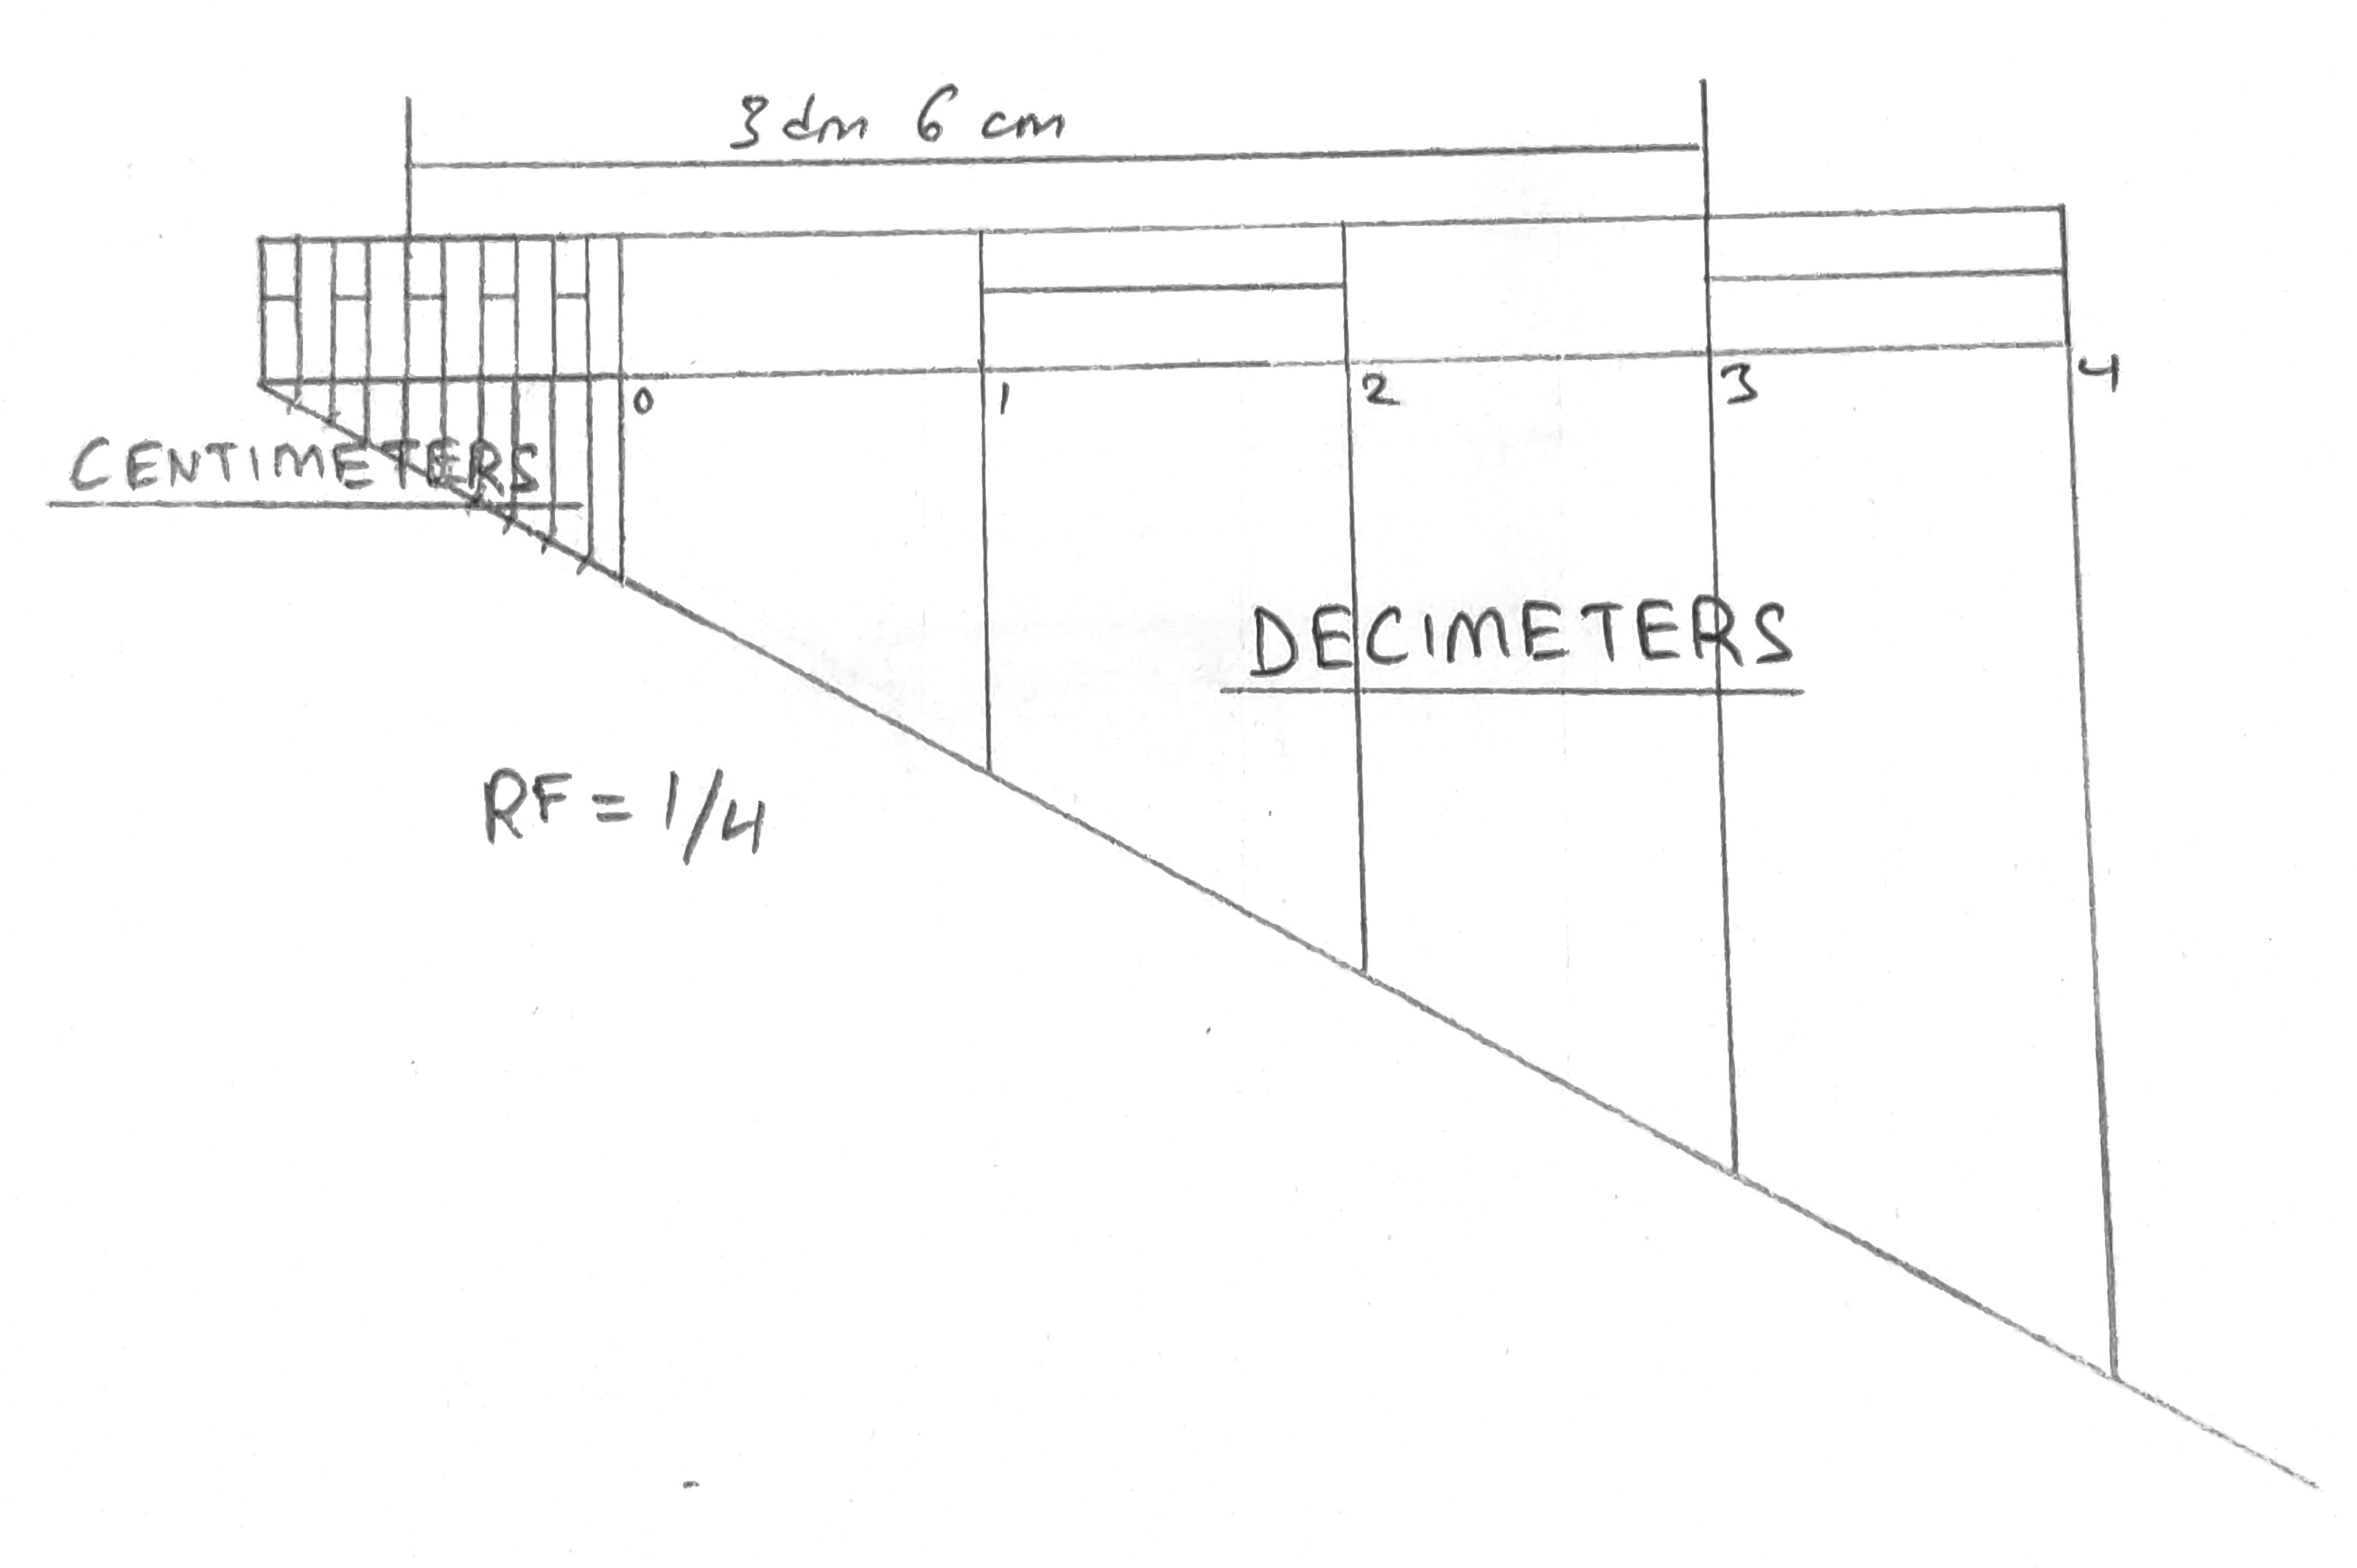 3 dm 6 cm
0 1 2 3 4
CENTIMETERS
DECIMETERS
RF = 1/4